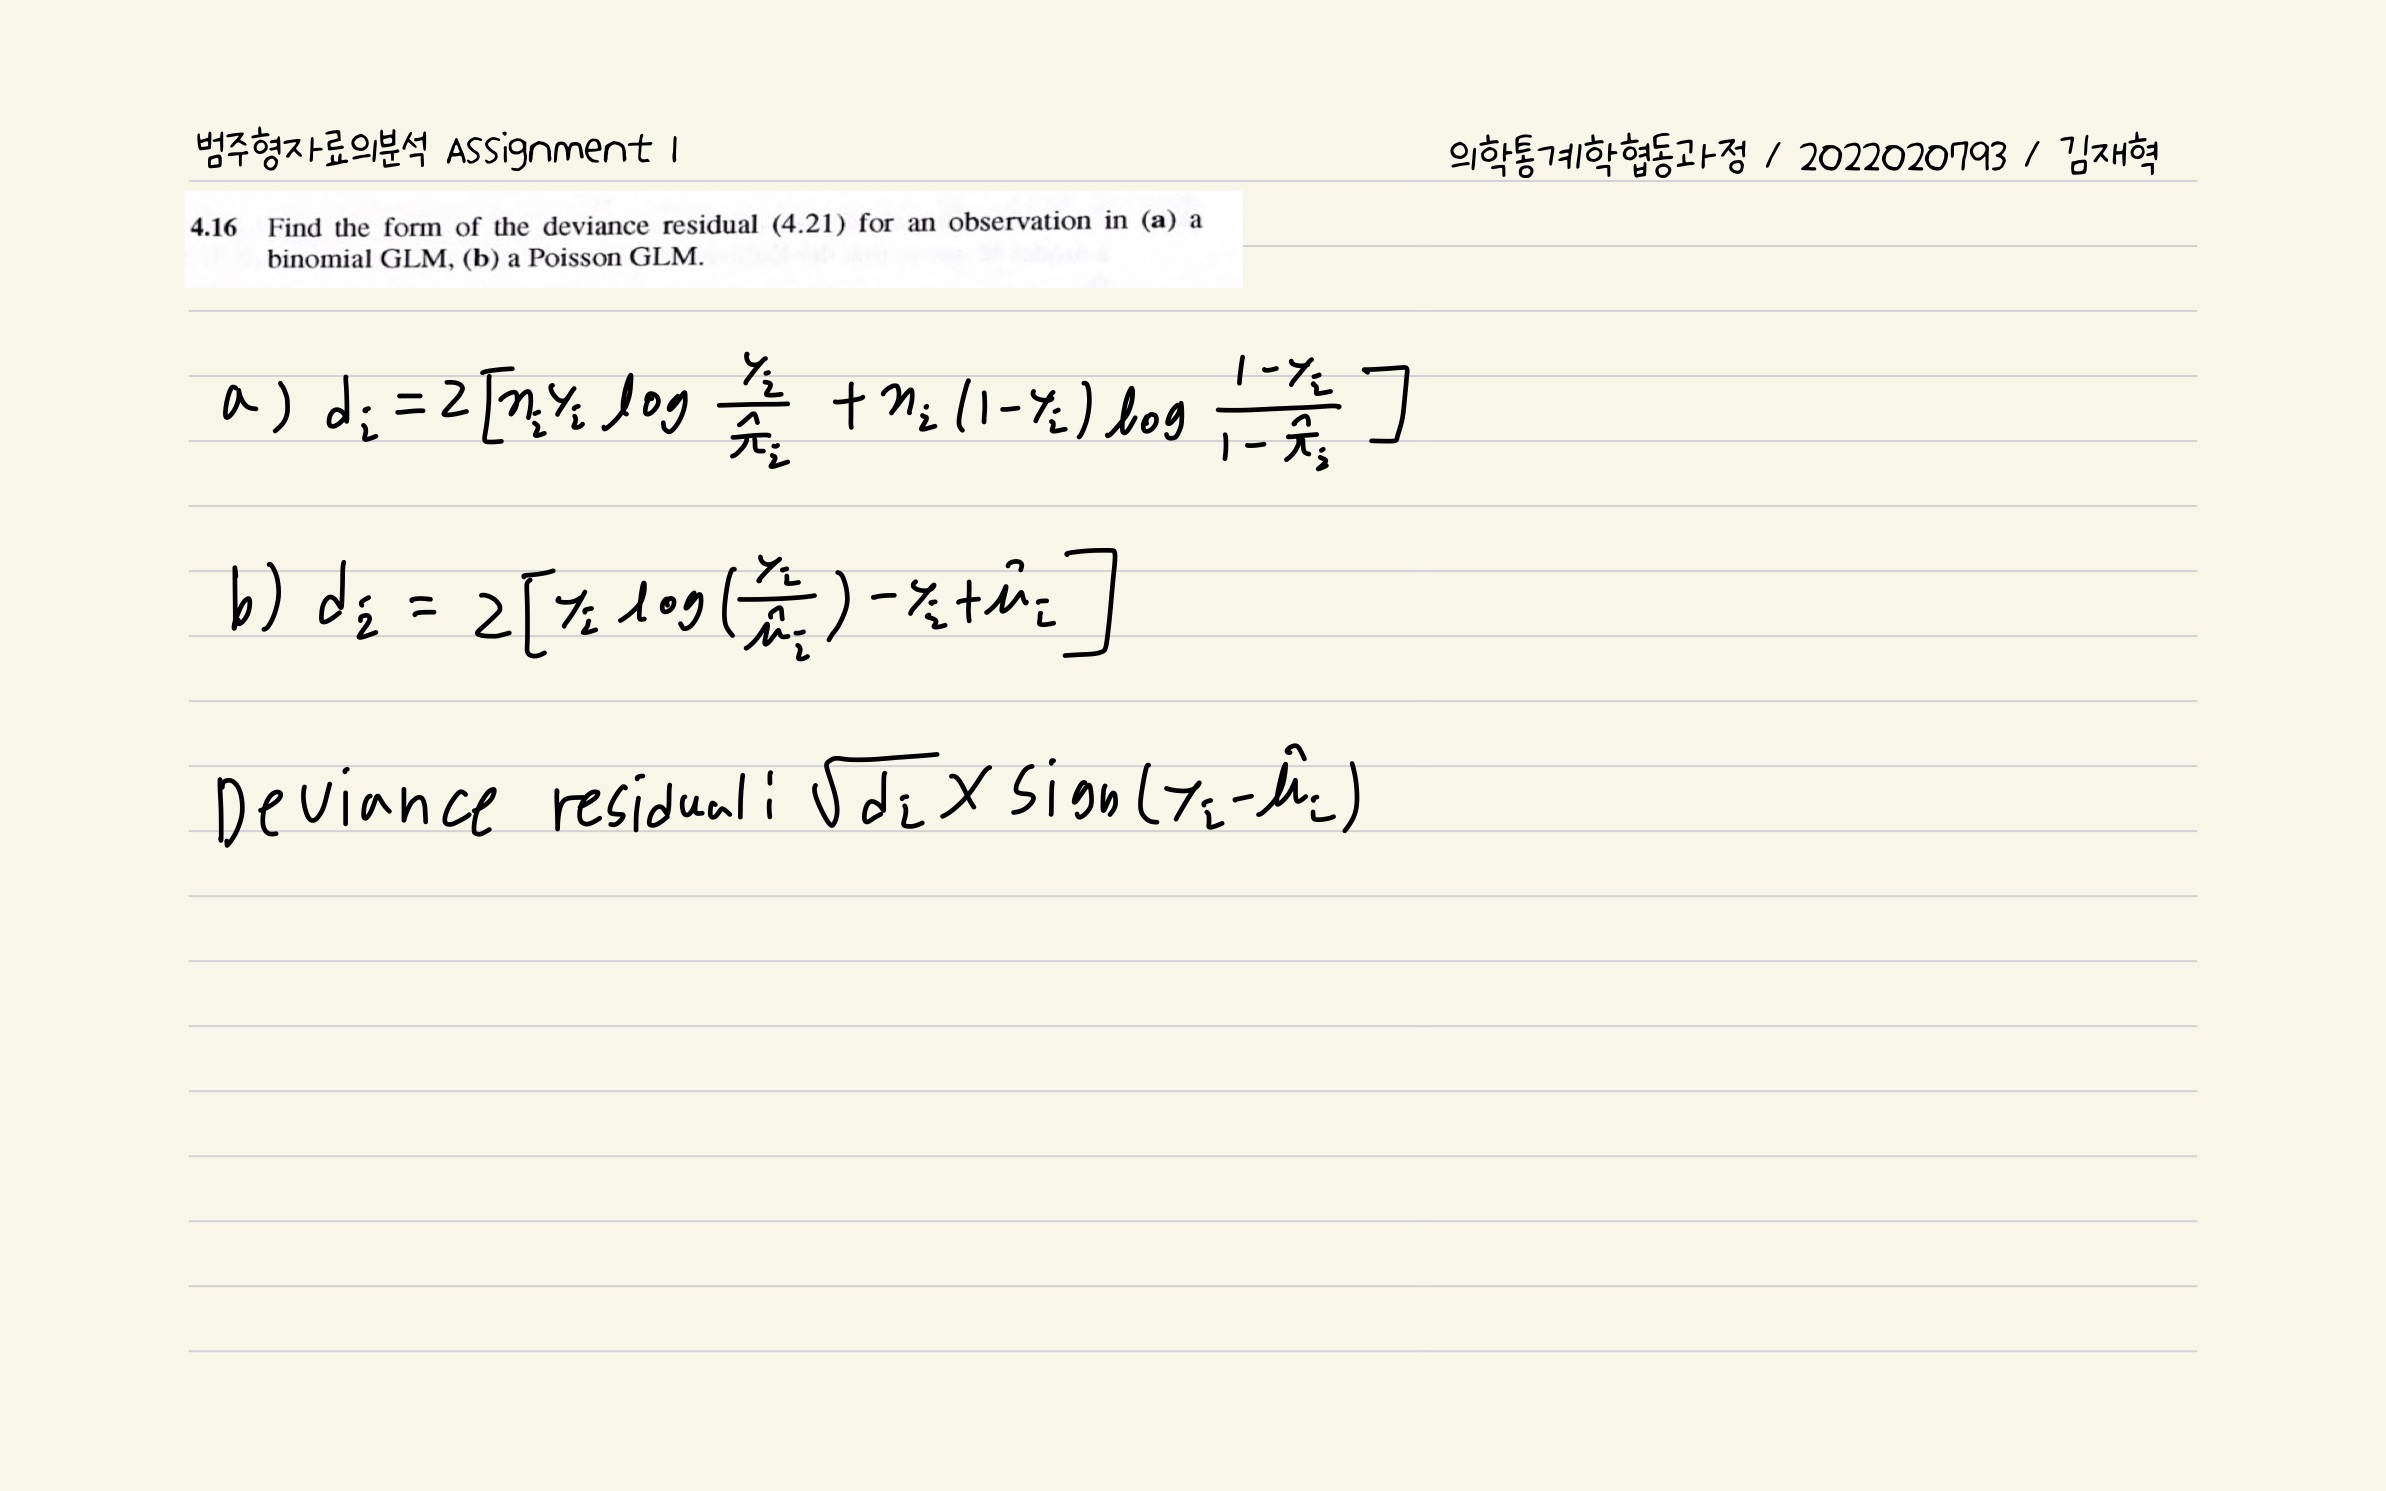 범주형자료의분석 Assignment 1
의학통계학협동과정 / 2022020793 / 김재혁
4.16 Find the form of the deviance residual (4.21) for an observation in (a) a
binomial GLM, (b) a Poisson GLM.
a) dᵢ = 2[nᵢyᵢ log yᵢ/π̂ᵢ + nᵢ(1-yᵢ) log (1-yᵢ)/(1-π̂ᵢ)]
b) dᵢ = 2[yᵢ log(yᵢ/μ̂ᵢ) - yᵢ + μ̂ᵢ]
Deviance residual: √dᵢ × sign(yᵢ - μ̂ᵢ)